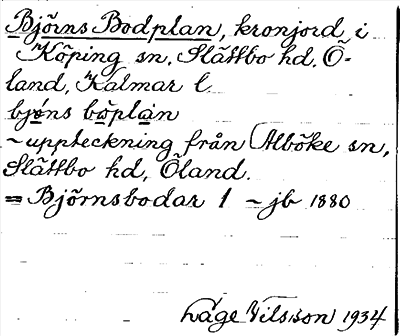 Björns Bodplan, kronjord i
Köping sn, Slättbo hd. Ö-
land, Kalmar l.
bjo̱ns bo̱pla̱n
~ uppteckning från Alböke sn,
Slättbo hd, Öland.
= Björnsbodar 1 ~ jb 1880
Låge Nilsson 1934